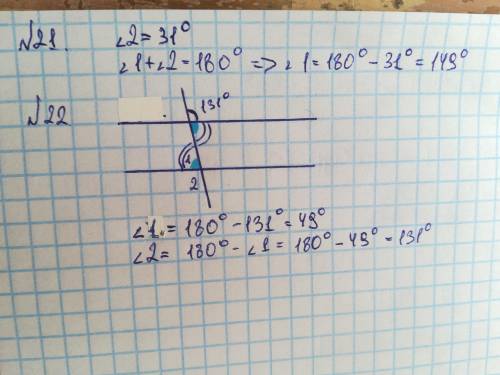 №21. ∠2 = 31°
∠1+∠2 = 180° => ∠1 = 180° - 31° = 149°
№22
131°
1
2
∠1. = 180° - 131° = 49°
∠2 = 180° - ∠1 = 180° - 49° = 131°